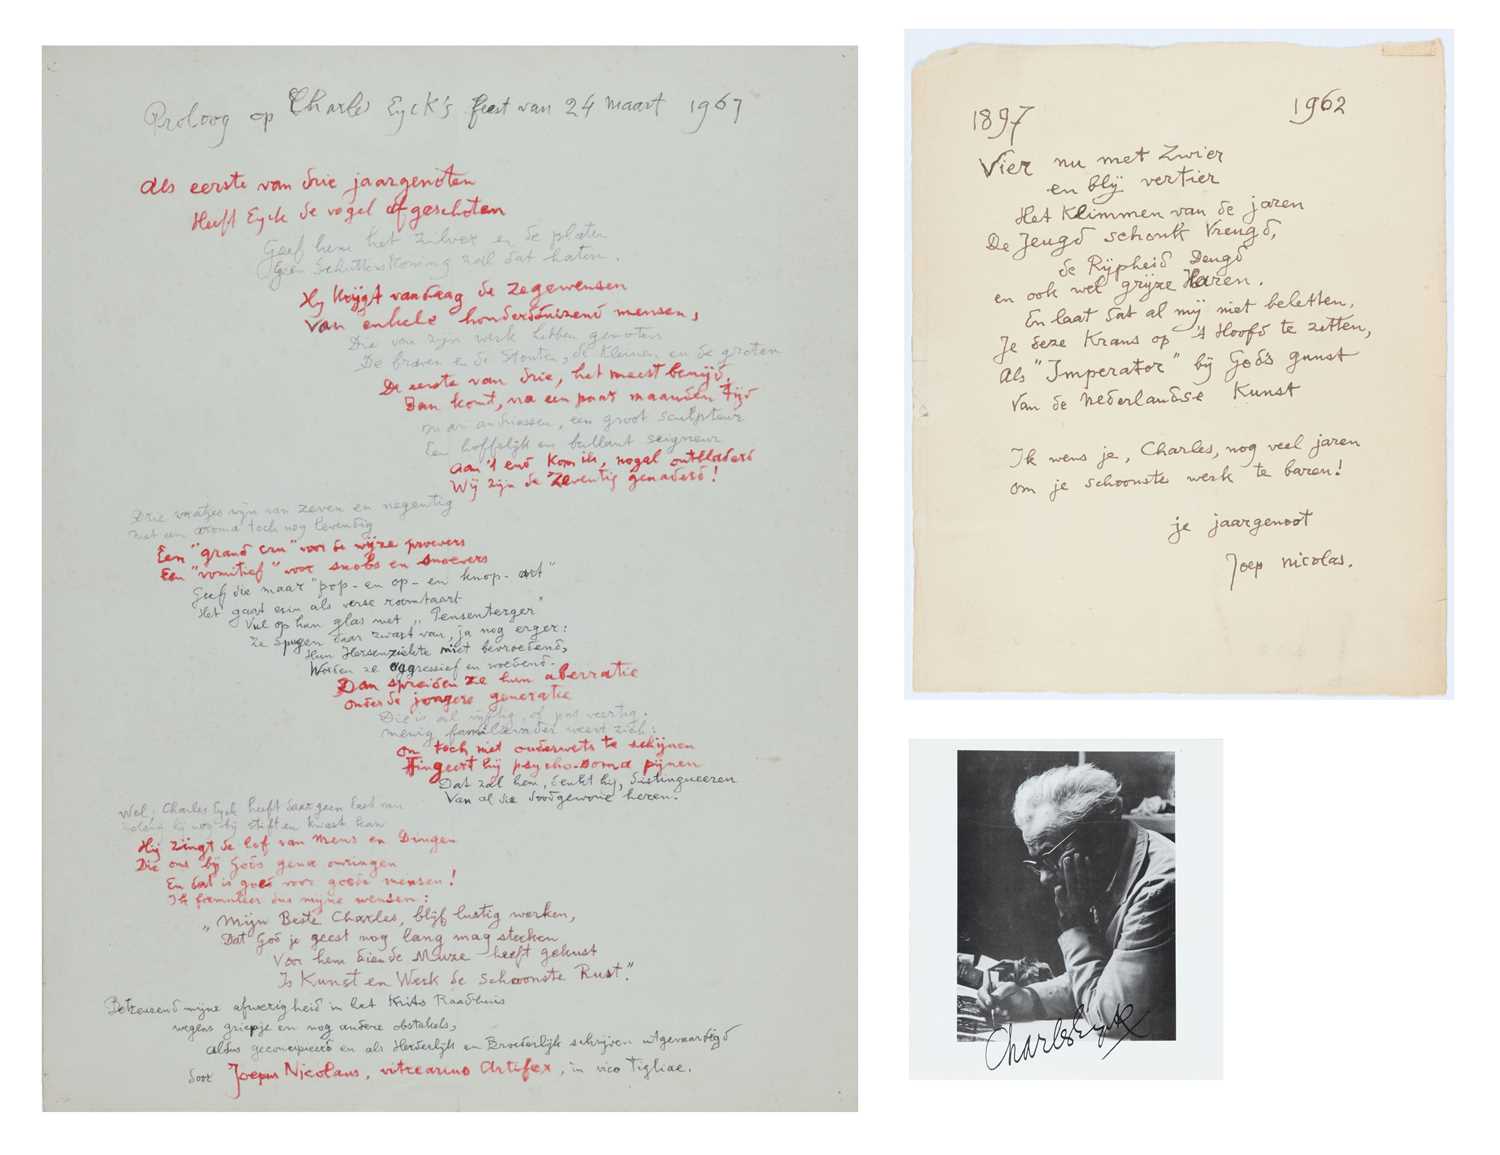 Proloog op Charles Eyck's feest van 24 maart 1967
Als eerste van drie jaargenoten
Heeft Eyck de vogel afgeschoten
Geef hem het zilver en de platen
Geen Schutterskoning zal dat haten.
Hij krijgt vandaag de zegewensen
Van enkele honderdduizend mensen,
Die van zijn werk hebben genoten
De braven en de Stouten, de kleinen en de groten
De eerste van drie, het meest benijd,
Dan komt, na een paar maanden tijd
Mari Andriessen, een groot sculpteur
Een hoffelijk en briljant seigneur
Aan 't end kom ik, nogal ontbladerd
Wij zijn de Zeventig genaderd!
Drie vaatjes wijn van zeven en negentig
Met een aroma toch nog levendig
Een "grand cru" voor de wijze proevers
Een "vomitief" voor snobs en snoevers
Geef die maar "pop- en op- en knop- art"
Het gaat erin als verse roomtaart
Vul op hun glas met "Pensenterger"
Ze spugen daar zwart van, ja nog erger:
Hun Hersenziekte niet bevroedend,
Worden ze aggressief en woedend.
Dan spreiden ze hun aberratie
onder de jongere generatie
Die is al vijftig, of pas veertig.
menig familievader weert zich:
om toch niet ouderwets te schijnen
Fingeert hij psycho-soma pijnen
Dat zal hem, denkt hij, distingueeren
Van al die doodgewone heren.
Wel, Charles Eyck heeft daar geen last van
Zolang hij nog bij stift en kwast kan
Hij zingt de lof van Mens en Dingen
Die ons bij Gods gena omringen
En dat is goed voor goede mensen!
Ik formuleer dus mijne wensen:
"Mijn Beste Charles, blijf lustig werken,
Dat God je geest nog lang mag sterken
Voor hem die de Muze heeft gekust
Is Kunst en Werk de Schoonste Rust."
Betreurend mijne afwezigheid in het Krits Raadhuis
wegens griepje en nog andere obstakels,
aldus geconcipieerd en als Herderlijk en Broederlijk schrijven uitgevaardigd
door Joepus Nicolaus, vitrearius Artifex, in vico Tigliae.
1897 1962
Vier nu met Zwier
en blij vertier
Het Klimmen van de jaren
De Jeugd schonk Vreugd,
de Rijpheid Deugd
en ook wel grijze Haren.
En laat dat al mij niet beletten,
Je deze Krans op 't Hoofd te zetten,
Als "Imperator" bij Gods gunst
Van de Nederlandse Kunst
Ik wens je, Charles, nog veel jaren
om je schoonste werk te baren!
je jaargenoot
Joep Nicolas.
Charles Eyck